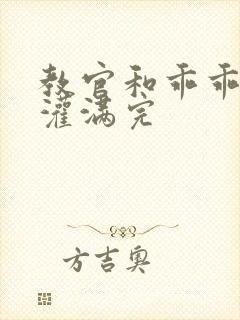 教官和乖乖
灌满完
方吉奥